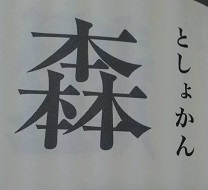 𣡽
としょかん